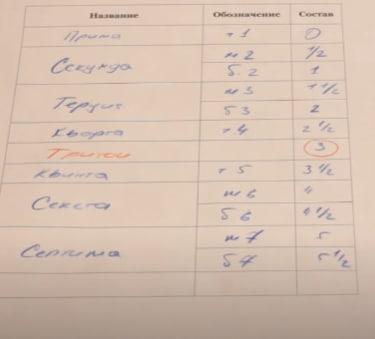 Название Обозначение Состав
Прима ч1 0
Секунда м2 1/2
б.2 1
Терция м3 1 1/2
б3 2
Кварта ч4 2 1/2
Тритон 3
Квинта ч5 3 1/2
Секста м6 4
б6 4 1/2
Септима м7 5
б7 5 1/2